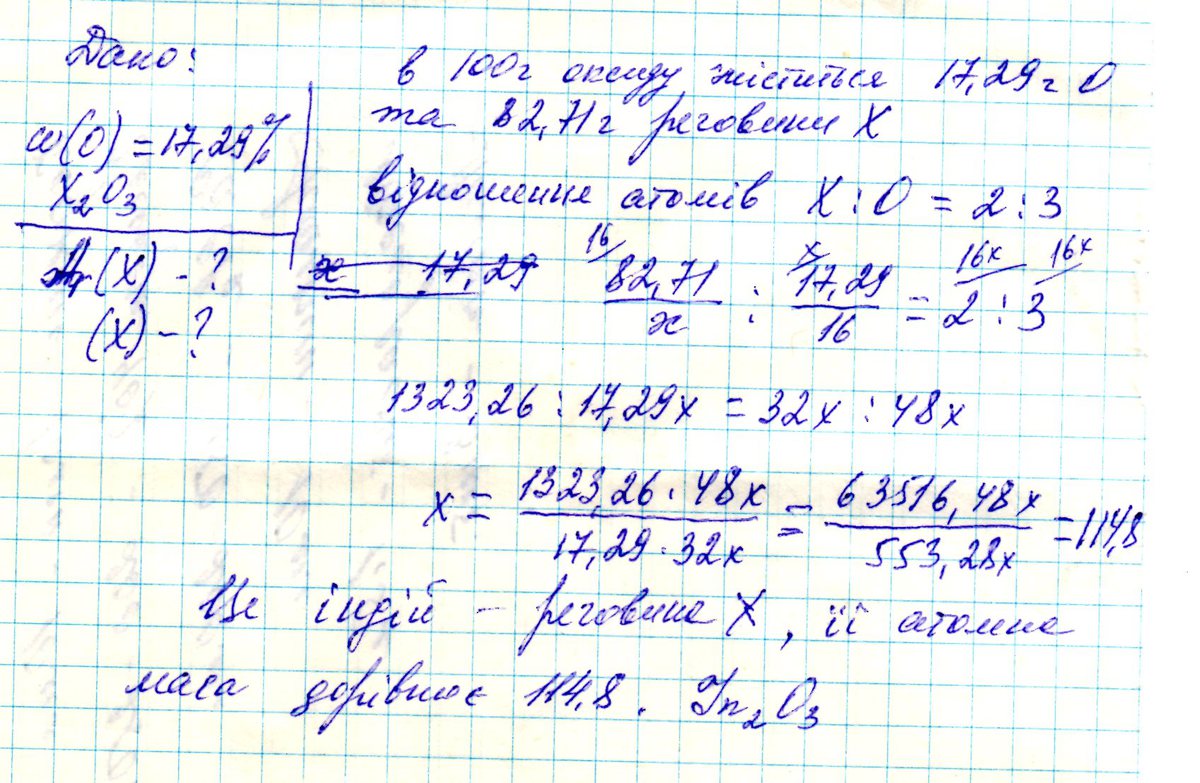 Дано:
в 100г оксиду міститься 17,29г O
та 82,71г речовини X
ω(O) = 17,29%
X₂O₃
відношення атомів X : O = 2 : 3
Ar(X) - ?
(X) - ?
x 17,29
16/ 82,71/x : x/ 17,29/16 = 16x/ 2 : 16x/ 3
1323,26 : 17,29x = 32x : 48x
x = 1323,26 · 48x / 17,29 · 32x = 63516,48x / 553,28x = 114,8
Це індій - речовина X, її атомна
маса дорівнює 114,8. In₂O₃